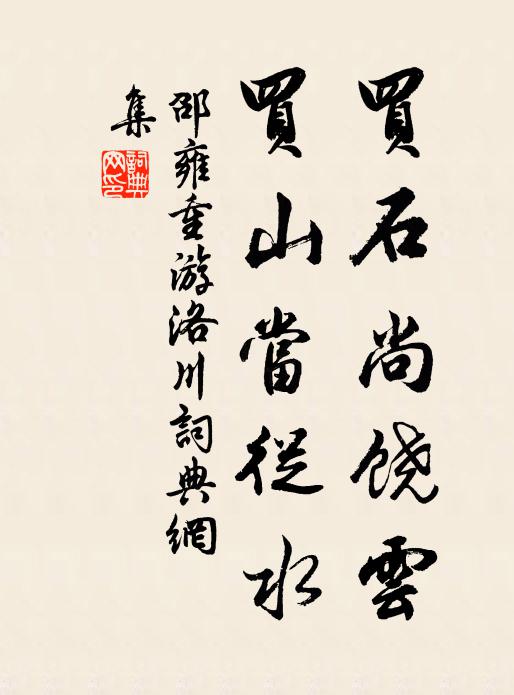 買石尚饶雲
買山當從水
邵雍重游洛川詞典網
集
詞典
网印